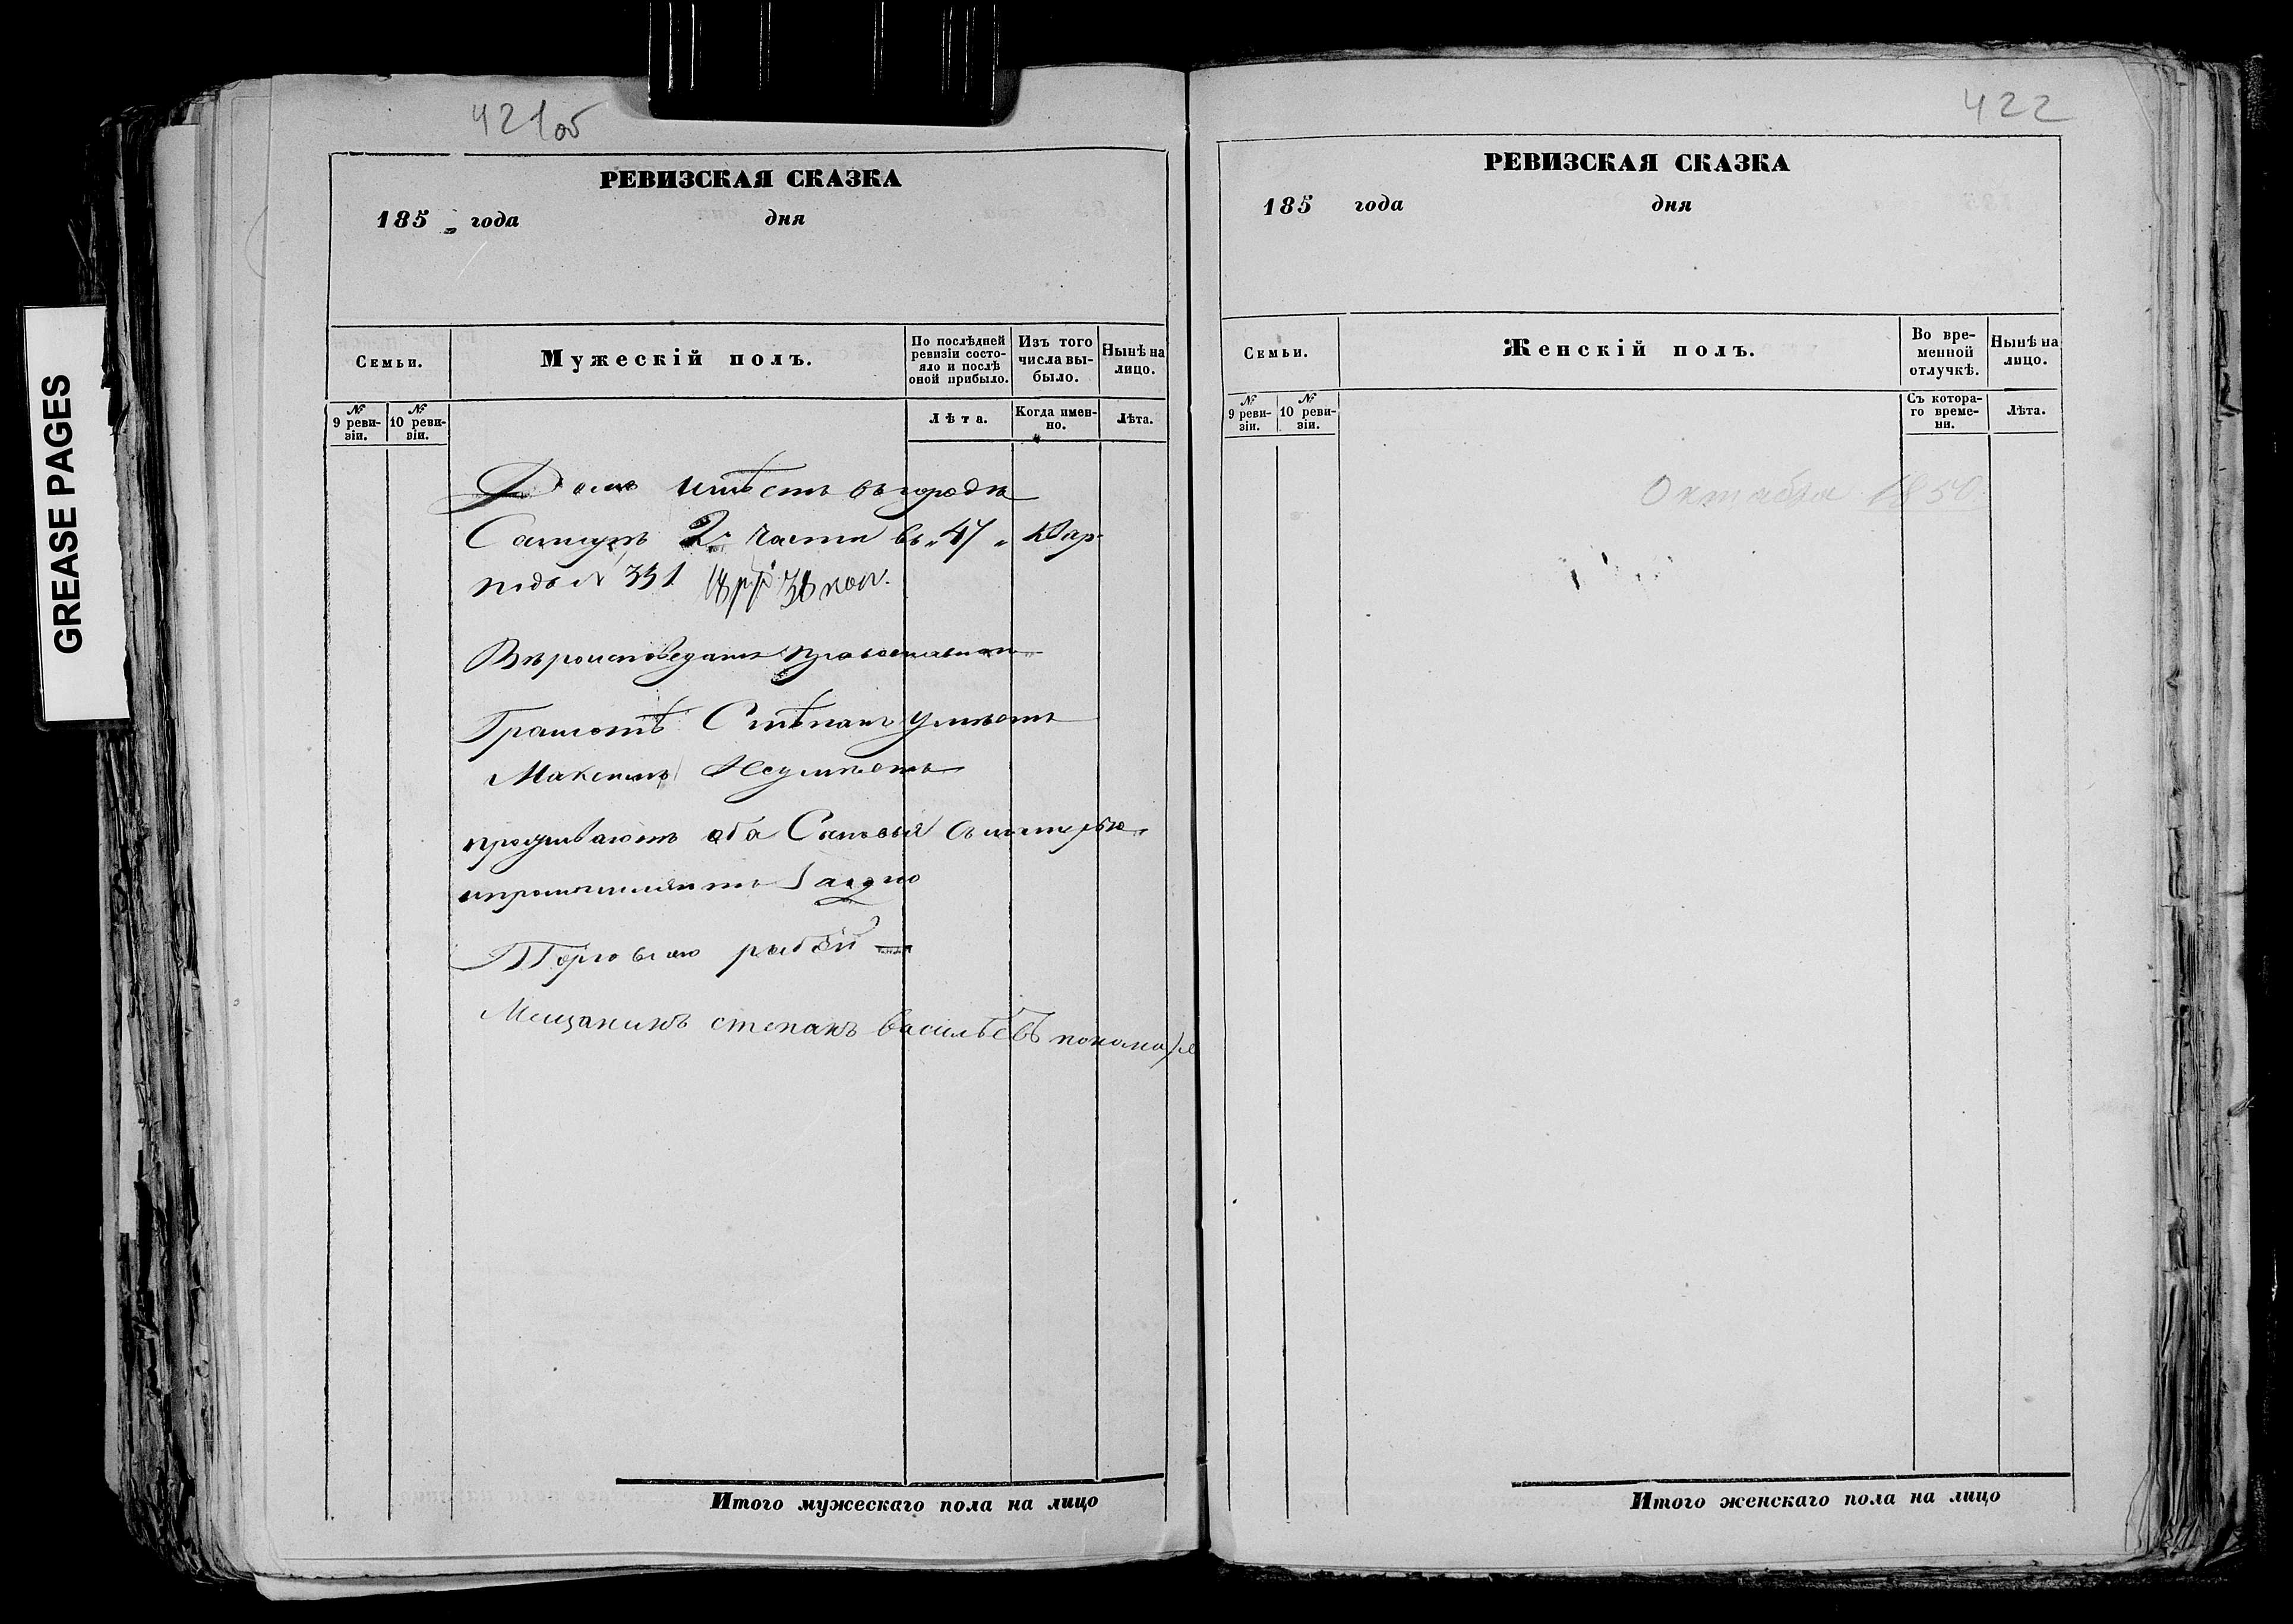 421об
РЕВИЗСКАЯ СКАЗКА
185 года дня
Семьи.
Мужескій полъ.
По послѣдней ревизіи состояло и послѣ оной прибыло.
Изъ того числа выбыло.
Нынѣ на лицо.
№ 9 ревизіи.
№ 10 ревизіи.
Лѣта.
Когда именно.
Лѣта.
Домъ имѣетъ въ городѣ
2 части въ „47„ квар
№ 331 38 коп.
Вѣроисповеданія православнаго
Грамотѣ Стѣпанъ умѣетъ
Максимъ Неумѣетъ
проживаютъ оба съ матерью
Торговлею рыбой
Мещанинъ степанъ васильѣвъ
Итого мужескаго пола на лицо
GREASE PAGES
422
РЕВИЗСКАЯ СКАЗКА
185 года дня
Семьи.
Женскій полъ.
Во временной отлучкѣ.
Нынѣ на лицо.
№ 9 ревизіи.
№ 10 ревизіи.
Съ котораго времени.
Лѣта.
Октября 1850
Итого женскаго пола на лицо